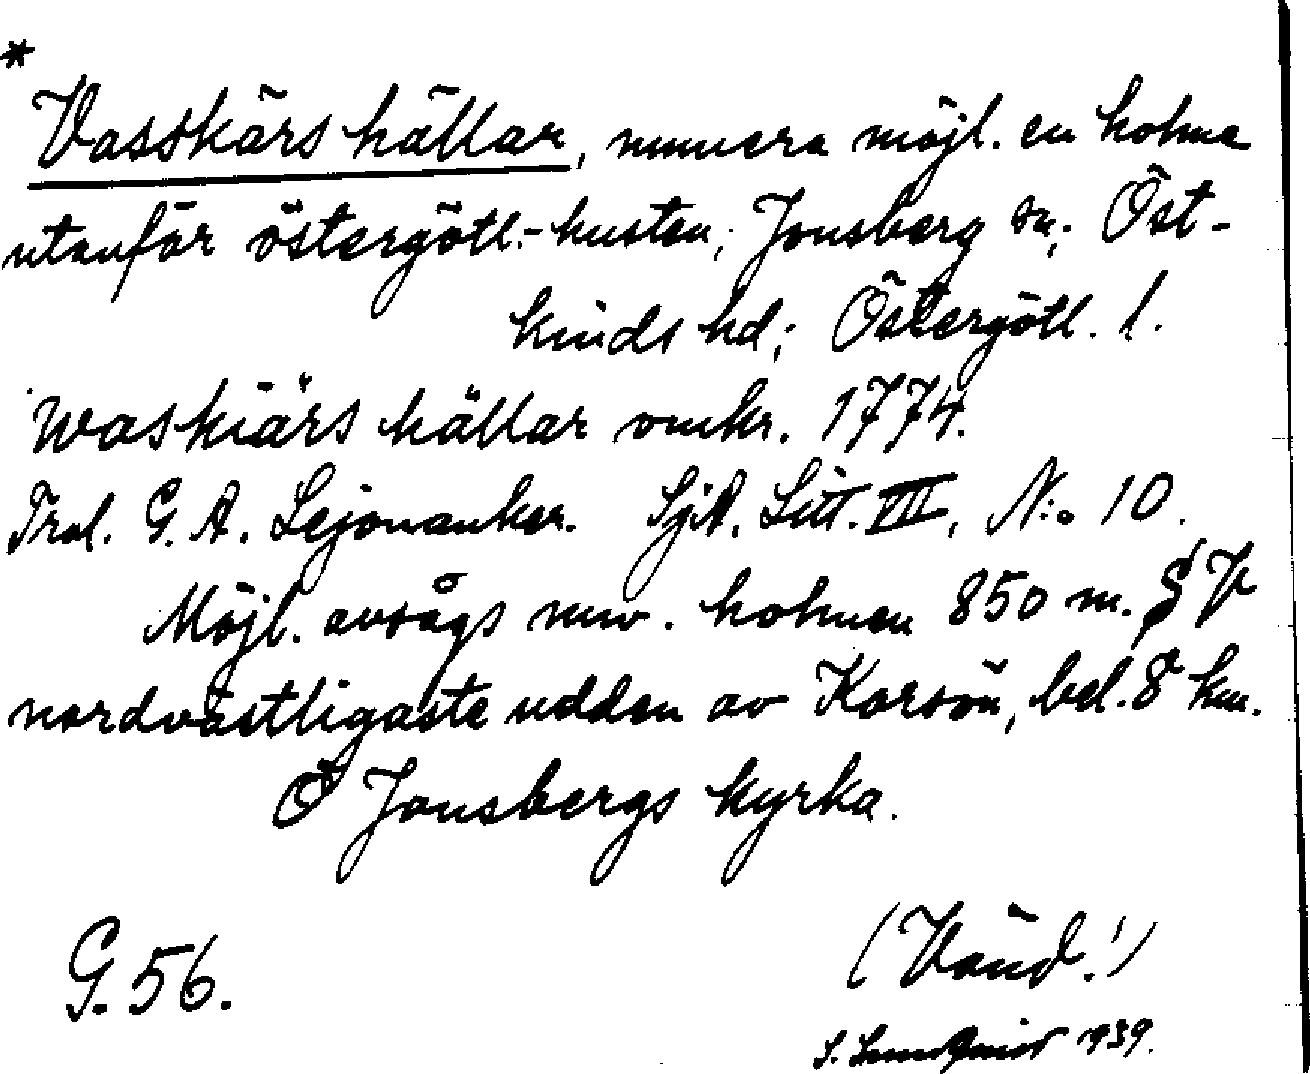 *
Vasskärs hällar, numera möjl. en holme
utanför östergötl.-kusten, Jonsberg sn; Öst-
kinds hd; Östergötl. l.
Waskiärs hällar omkr. 1774.
Trol. G. A. Lejonanker. SjA. Litt. VIII, N:o 10.
Möjl. avsågs nuv. holmen 850 m. SV
nordvästligaste udden av Korsön, bel. 8 km.
Ö Jonsbergs kyrka.
G. 56.
(Vänd!)
1939.